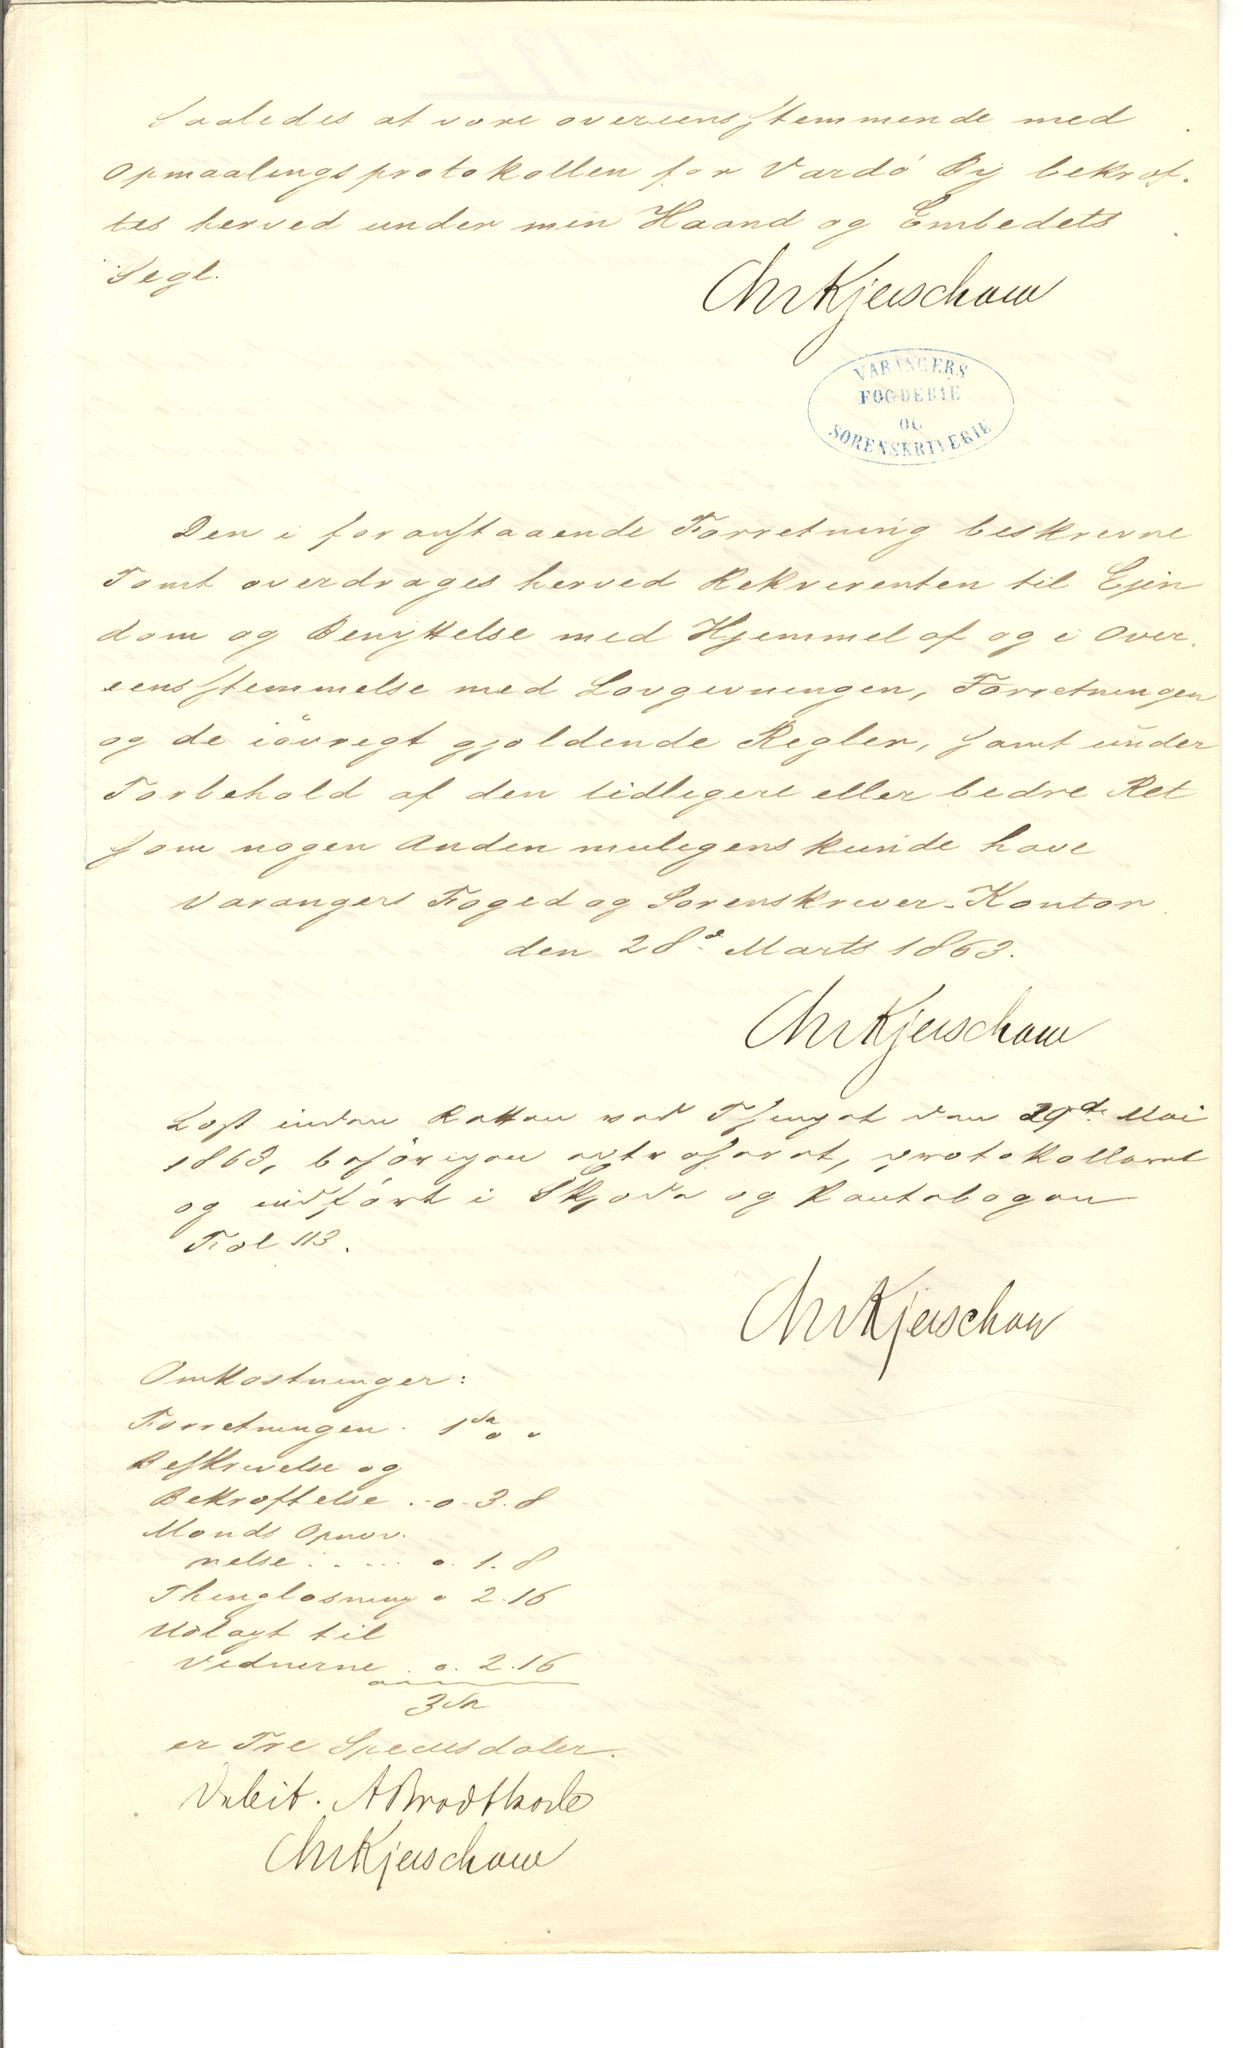 Saaledes at være overeensstemmende med
Opmaalingsprotokollen for Vardö By bekræf-
tes herved under min Haand og Embedets
Segl.
Chr Kjerschow
VARANGERS
FOGDERIE
OG
SORENSKRIVERIE
Den i foranstaaende Forretning beskrevne
Tomt overdrages herved Rekvirenten til Ejen
dom og Benyttelse med Hjemmel af og i Over-
eensstemmelse med Lovgivningen, Forretningen
og de iøvrigt gjældende Regler, samt under
Forbehold af den tidligere eller bedre Ret
som nogen Anden muligens kunde have
Varangers Foged og Sorenskriver-Kontor
den 28de Marts 1863.
Chr Kjerschow
Læst inden Retten ved Thinget den 29de Mai
1863, behörigen extraheret, protokolleret
og indført i Skjøde og Pantebogen
Fol 113.
Chr Kjerschow
Omkostninger:
Forretningen . 1 Sp " "
Beskrivelse og
Bekræftelse . - " - 3 . 8
Mænds Opnæv-
nelse . . . . . . " . 1 . 8
Thinglæsning " 2 . 16
Udlagt til
Vidnerne . " . 2 . 16
3 Sp
er Tre Speciesdaler.
Debit. A Brodtkorb
Chr Kjerschow